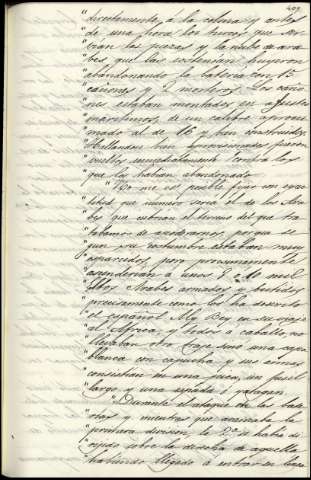 409
"directamente á la colina y antes
" de una hora los turcos que ser-
" vian las piezas y la nube de ara-
" bes que las sostenian huyeron
" abandonando la bateria con 15
" cañones y 2 morteros. Los caño-
" nes estaban montados en ajustes
" maritimos, de un calibre aproxi-
" mado al de 16 y bien construidos.
" Hallandose bien aprovisionados fueron
" vueltos inmediatamente contra los
" que los habian abandonado.
" No me es posible fijar con exac-
" titud que número seria el de los Ara-
" bes que cubrian el terreno del que tra-
" tabamos de apoderarnos, porque se-
" gun su costumbre estaban muy
" esparcidos, pero proximamente
" ascenderian á unos 8 á 10 mil
" Arabes armados y vestidos
" precisamente como los ha descrito
" el español Aly Bey en su viaje
" al Africa, y todos á caballo, no
" llevaban otro traje sino una capa
" blanca con capucha y sus armas
" consistian en una pica, un fusil
" largo, y una espada ó yatagan.
" Durante el ataque de las bate-
" rias y mientras que avanzaba la
" primera division, la 2ª se habia di-
" rijido sobre la derecha de aquella
" habiendo llegado á entrar en linea